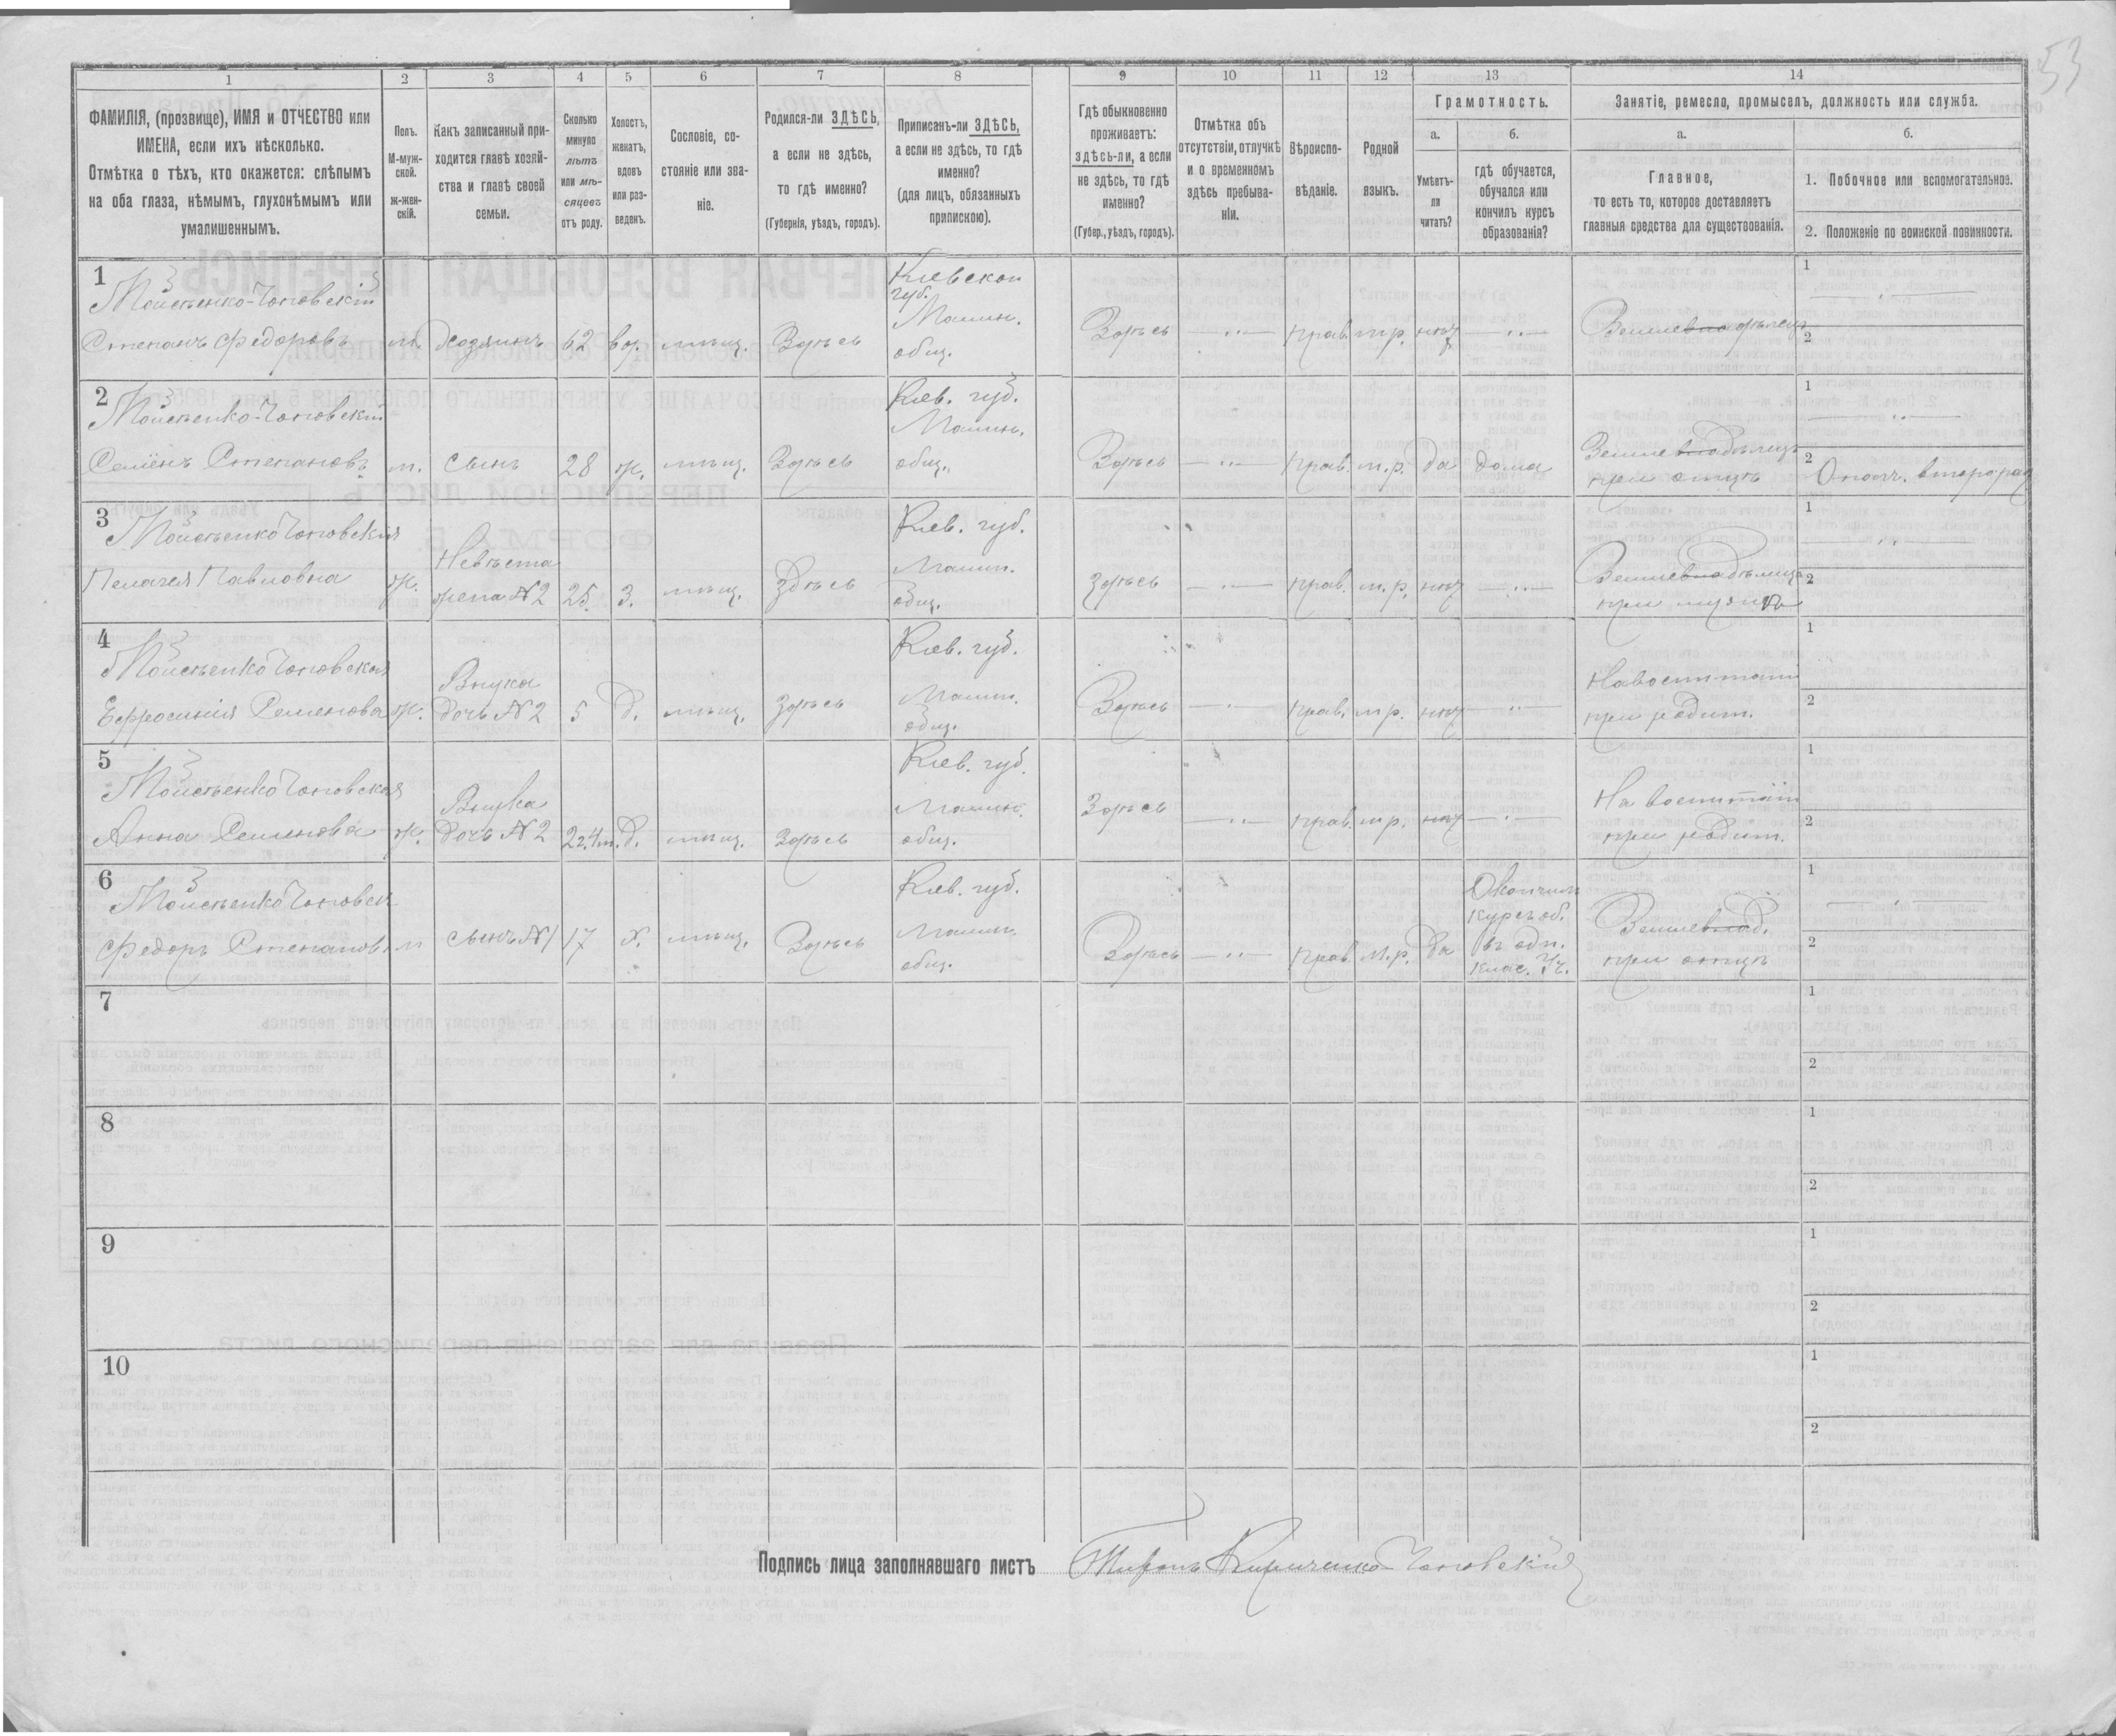 53
1 2 3 4 5 6 7 8 9 10 11 12 13 14
ФАМИЛІЯ, (прозвище), ИМЯ и ОТЧЕСТВО или
ИМЕНА, если ихъ нѣсколько.
Отмѣтка о тѣхъ, кто окажется: слѣпымъ
на оба глаза, нѣмымъ, глухонѣмымъ или
умалишеннымъ.
Полъ.
М-муж-
ской.
ж-жен-
скій.
Какъ записанный при-
ходится главѣ хозяй-
ства и главѣ своей
семьи.
Сколько
минуло
лѣтъ
или мѣ-
сяцевъ
отъ роду.
Холостъ,
женатъ,
вдовъ
или раз-
веденъ.
Сословіе, со-
стояніе или зва-
ніе.
Родился-ли ЗДѢСЬ,
а если не здѣсь,
то гдѣ именно?
(Губернія, уѣздъ, городъ).
Приписанъ-ли ЗДѢСЬ,
а если не здѣсь, то гдѣ
именно?
(для лицъ, обязанныхъ
припискою).
Гдѣ обыкновенно
проживаетъ:
здѣсь-ли, а если
не здѣсь, то гдѣ
именно?
(Губер., уѣздъ, городъ).
Отмѣтка объ
отсутствіи, отлучкѣ
и о временномъ
здѣсь пребыва-
ніи.
Вѣроиспо-
вѣданіе.
Родной
языкъ.
Грамотность.
а.
Умѣетъ-
ли
читать?
б.
гдѣ обучается,
обучался или
кончилъ курсъ
образованія?
Занятіе, ремесло, промыселъ, должность или служба.
а.
Главное,
то есть то, которое доставляетъ
главныя средства для существованія.
б.
1. Побочное или вспомогательное.
2. Положеніе по воинской повинности.
1
Мойсѣенко-Чоповскій
Степанъ Федоровъ м. Хозяинъ 62 вд. мѣщ. Здѣсь
Кіевской
губ.
Малин.
общ.
Здѣсь прав. м.р. нѣт
Землевладѣлец
1
2
2
Мойсѣенко-Чоповскій
Семёнъ Степановъ м. сынъ 28 ж. мѣщ. Здѣсь
Кіев. губ.
Малин.
общ.
Здѣсь прав. м.р. да дома
Землевладѣлец
при отцѣ
1
2 Ополч. втор. раз
3
Мойсѣенко Чоповскія
Пелагея Павловна ж.
Невѣста
жена №2 25 З. мѣщ. Здѣсь
Кіев. губ.
Малин.
общ.
Здѣсь прав. м.р. нѣт
Землевладѣлица
при мужѣ
1
2
4
Мойсѣенко Чоповская
Ефросинія Семенова ж.
Внука
Дочь №2 5 Д. мѣщ. Здѣсь
Кіев. губ.
Малин.
общ.
Здѣсь прав. м.р. нѣт
На воспитаніи
при родит.
1
2
5
Мойсѣенко Чоповская
Анна Семенова ж.
Внука
Дочь №2 2г.4м. Д. мѣщ. Здѣсь
Кіев. губ.
Малин.
общ.
Здѣсь прав. м.р. нѣт
На воспитаніи
при родит.
1
2
6
Мойсѣенко Чоповск
Федоръ Степанов. м сынъ №1 17 Х. мѣщ. Здѣсь
Кіев. губ.
Малин.
общ.
Здѣсь прав. м.р. да
Окончил
курсъ об.
въ одн.
клас. Уч.
Землевлад.
при отцѣ
1
2
7
1
2
8
1
2
9
1
2
10
1
2
Подпись лица заполнявшаго листъ Кириченко-Чоповскій